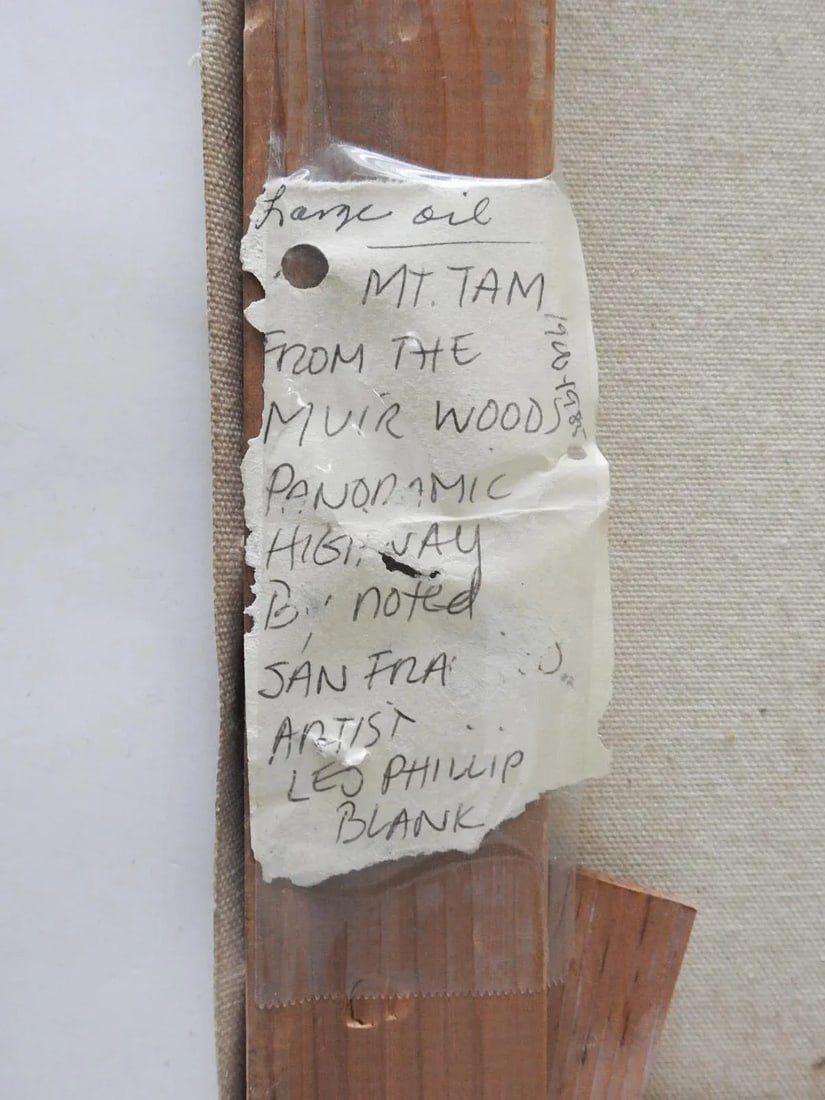 Large oil
MT. TAM
FROM THE
MUIR WOODS
PANORAMIC
HIGHWAY
By noted
SAN FRA
ARTIST
LEO PHILLIP
BLANK